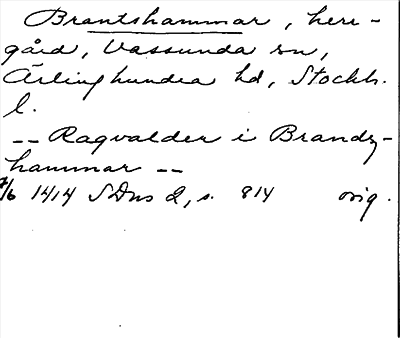 Brantshammar, herr-
gård, Vassunda sn,
Ärlinghundra hd, Stockh.
l.
-- Ragvalder i Brandz-
hammar --
7/6 1414 SDns 2, s. 814 orig.